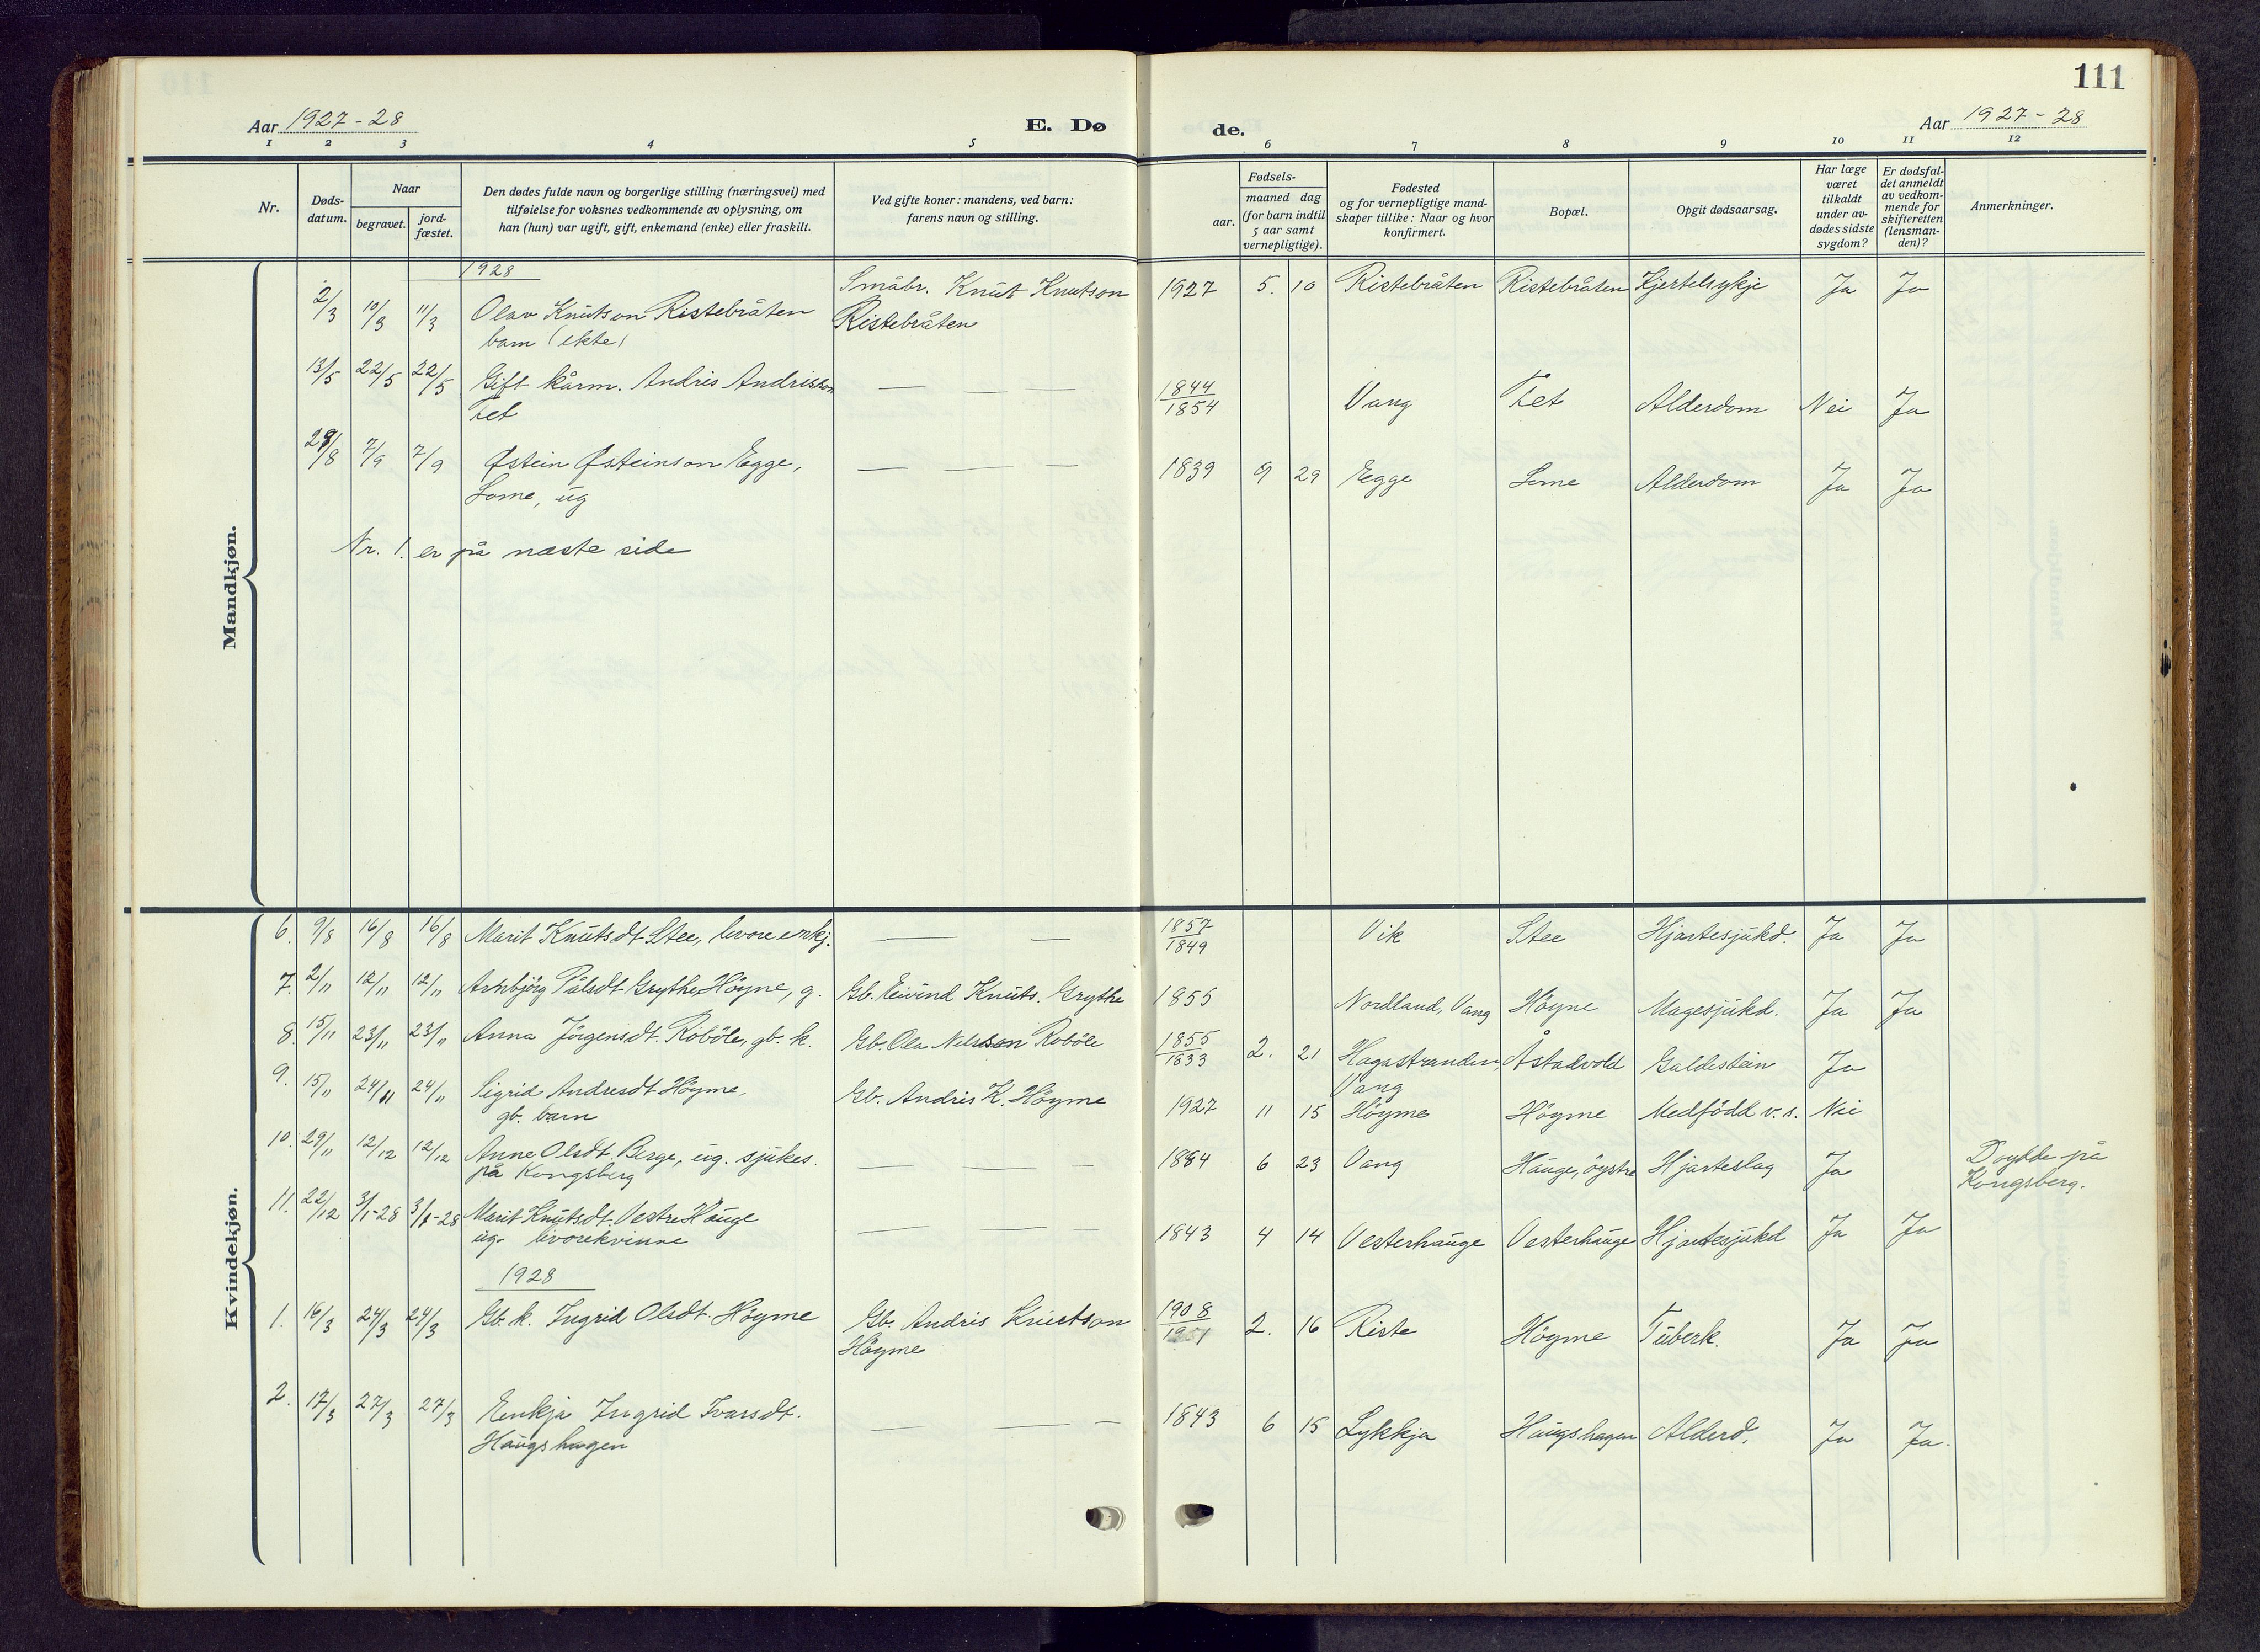 111
Aar 1927-28 E. Dø de. Aar 1927-28
1 2 3 4 5 6 7 8 9 10 11 12
Nr.
Døds-
datum.
Naar
begravet.
jord-
fæstet.
Den dødes fulde navn og borgerlige stilling (næringsvei) med
tilføielse for voksnes vedkommende av oplysning, om
han (hun) var ugift, gift, enkemand (enke) eller fraskilt.
Ved gifte koner: mandens, ved barn:
farens navn og stilling.
Fødsels-
aar. maaned dag
(for barn indtil
5 aar samt
vernepligtige).
Fødested
og for vernepligtige mand-
skaper tillike: Naar og hvor
konfirmert.
Bopæl.
Opgit dødsaarsag.
Har læge
været
tilkaldt
under av-
dødes sidste
sygdom?
Er dødsfal-
det anmeldt
av vedkom-
mende for
skifteretten
(lensman-
den)?
Anmerkninger.
Mandkjøn.
1928
2/3 10/3 11/3 Olav Knutson Ristebråten Småbr. Knut Knutson 1927 5. 10 Ristebråten Ristebråten Kjertelsykje Ja Ja
barn (ekte) Ristebråten
13/5 22/5 22/5 Gift kårm. Andris Andrisson — — — 1844/1854 Vang Tet Alderdom Nei Ja
Tet
29/8 7/9 7/9 Østein Østeinson Egge, — — — 1839 9 29 Egge Lome Alderdom Ja Ja
Lome, ug
Nr. 1. er på næste side
Kvindekjøn.
6. 9/8 16/8 16/8 Marit Knutsdt Stee, livore enkj. — — 1857/1849 Vik Stee Hjartesjukd. Ja Ja
7. 2/11 12/11 12/11 Arnbjörg Pålsdt Grythe, Höyne, g. Gb. Eivind Knuts. Grythe 1855 Nordland, Vang Höyne Magesjukd. Ja Ja
8. 15/11 23/11 23/11 Anna Jörgensdt. Roböle, gb. k. Gb. Ola Nelsson Roböle 1855/1833 2. 21 Hagastranden, Åstadvold Galdestein Ja
Vang
9. 15/11 24/11 24/11 Sigrid Andresdt Höyme, Gb. Andris K. Höyme 1927 11 15 Höyme Höyme Medfödd v. s. Nei
gb. barn
10. 29/11 12/12 12/12 Anne Olsdt. Berge, ug. sjukes. — — — 1884 6 23 Vang Hauge, öystre Hjarteslag Ja Doydde på
på Kongsberg Kongsberg.
11. 22/12 3/1-28 3/1-28 Marit Knutsdt. Vestre Hauge — — — 1843 4 14 Vesterhauge Vesterhauge Hjartesjukd Ja Ja
ug. livorekvinne
1928
1. 16/3 24/3 24/3 Gb. k. Ingrid Olsdt. Höyme Gb. Andris Knutson 1908 2. 16 Riste Höyme Tuberk. Ja Ja
Höyme
2. 17/3 27/3 27/3 Enkja Ingrid Ivarsdt. — — — 1843 6 15 Lykkja Haugshagen Alderd. Ja Ja.
Haugshagen